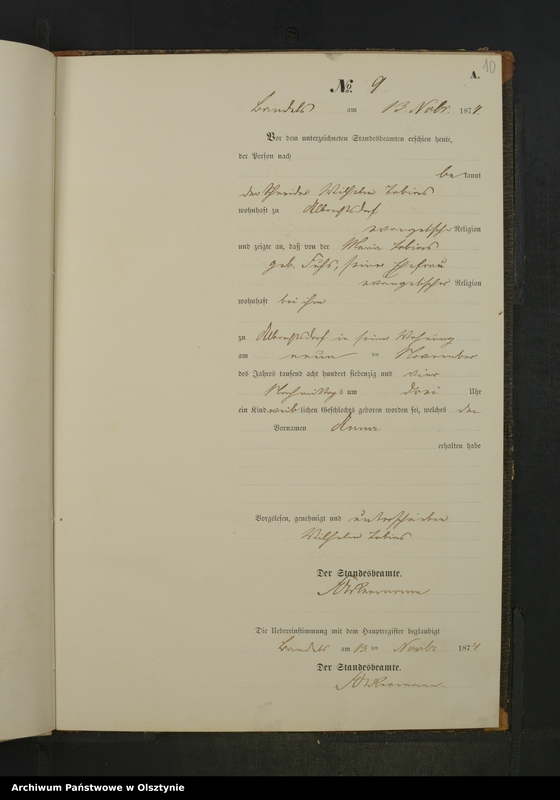 10
A.
№ 9
Bandels am 13. Novbr. 1874.
Vor dem unterzeichneten Standesbeamten erschien heute,
der Person nach
be kannt
der Schneider Wilhelm Tobies
wohnhaft zu Albrechtsdorf
evangelischer Religion
und zeigte an, daß von der Maria Tobies
geb. seiner Ehefrau
evangelischer Religion
wohnhaft bei ihm
zu Albrechtsdorf in seiner Wohnung
am neun ten November
des Jahres tausend acht hundert siebenzig und vier
Nachmittags um drei Uhr
ein Kind weiblichen Geschlechts geboren worden sei, welches den
Vornamen Anna
erhalten habe
Vorgelesen, genehmigt und unterschrieben
Wilhelm Tobies
Der Standesbeamte.
Die Uebereinstimmung mit dem Hauptregister beglaubigt
Bandels am 13 ten Novbr 1874
Der Standesbeamte.
Archiwum Państwowe w Olsztynie